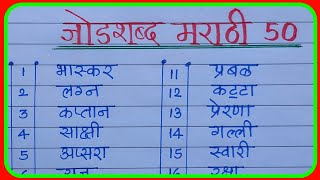 जोडशब्द मराठी 50
1 भास्कर 11 प्रबळ
2 लग्न 12 कट्टा
3 कप्तान 13 प्रेरणा
4 साक्षी 14 गल्ली
5 अप्सरा 15 स्वारी